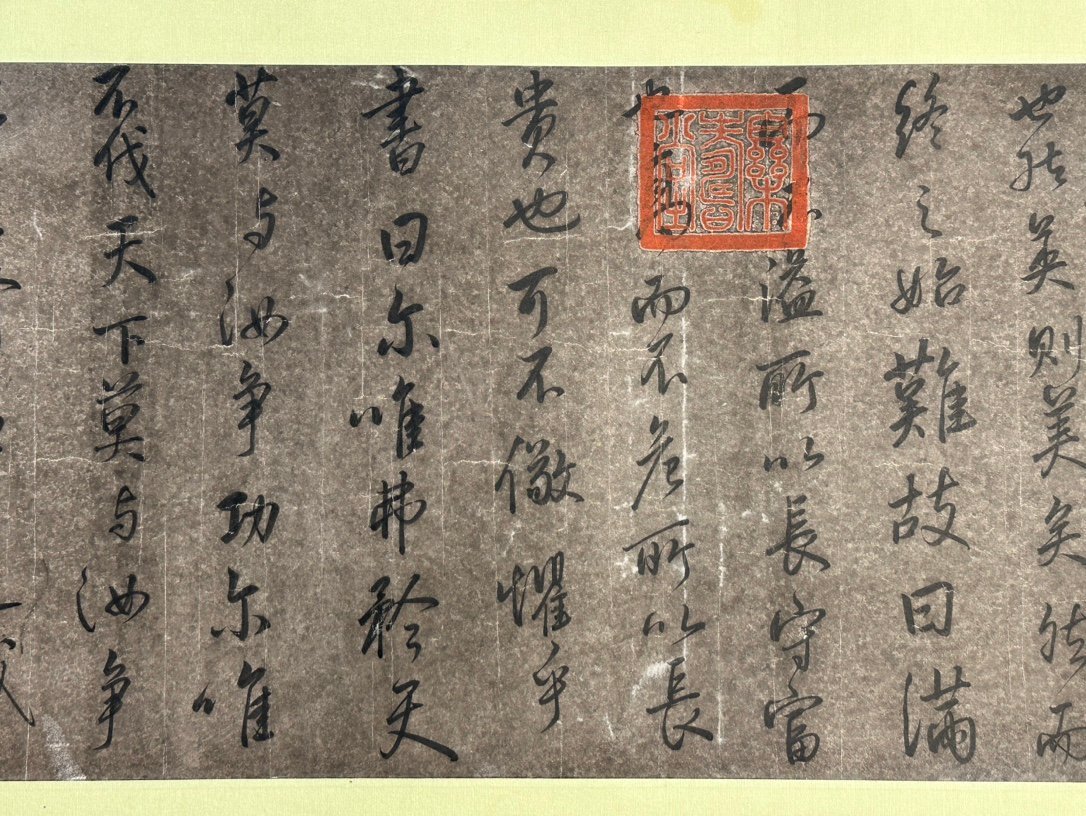 也然美则美矣然而
終之始難故曰滿
而不溢所以長守富
也高而不危所以長
貴也可不儆懼乎
書曰尔唯弗矜天
莫与汝争功尔唯
不伐天下莫与汝争